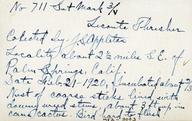 No 711 Set Mark 3/4
Leconte Thrasher
Collected by J.S. Appleton
Locality about 2½ miles S.E. of
Palm Springs, Calif.
Date Feb. 21-1920, Incubated about 2/3
Nest of coarse sticks lined with
about 3 ft up in
cactus Bird